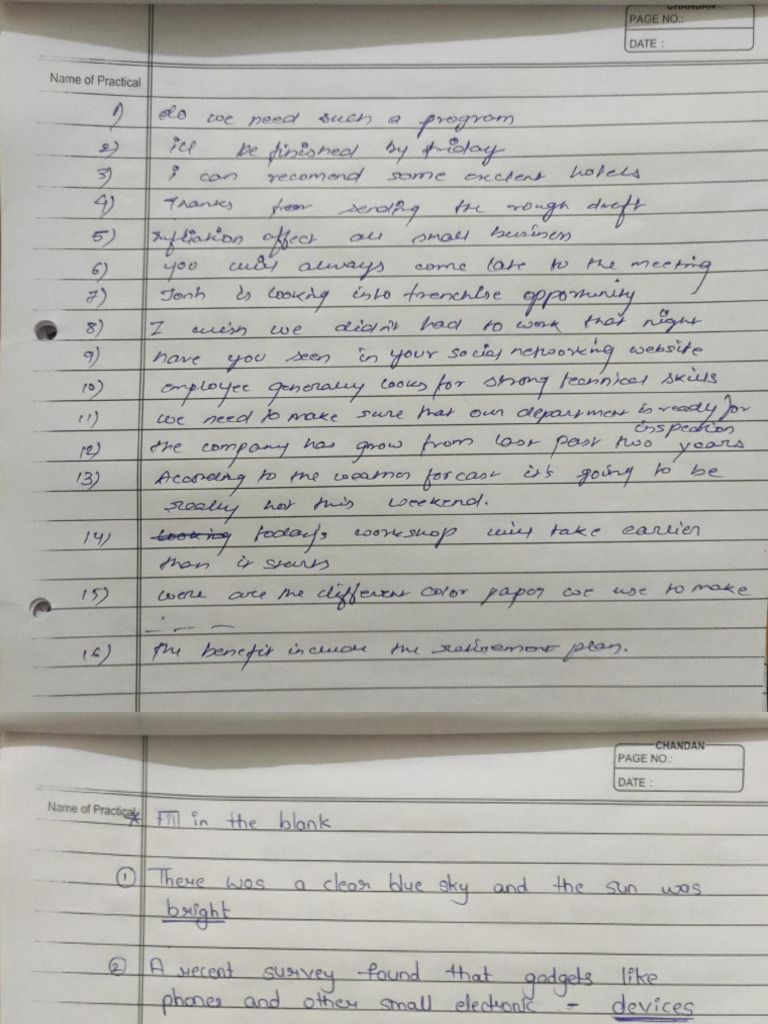 CHANDAN
PAGE NO.:
DATE :
Name of Practical
1) do we need such a program
2) ill be finished by friday
3) i can recomend some exclent hotels
4) Thanks for sending the rough draft
5) Infliation affect all small business
6) you will always come late to the meeting
7) Jonh is looking into frenchise opportunity
8) I wish we didn't had to work that night
9) have you seen in your social networking website
10) employee generally looks for strong technical skills
11) we need to make sure that our department is ready for
inspection
12) the company has grow from last past two years
13) Acording to the weather forcast it's going to be
really hot this weekend.
14) looking today's workshop will take earlier
than it starts
15) were are the different color paper we use to make
. - - -
16) The benefit include the retirement plan.
CHANDAN
PAGE NO.:
DATE :
Name of Practical
* Fill in the blank
① There was a clear blue sky and the sun was
bright
② A recent survey found that gadgets like
phones and other small electronic - devices